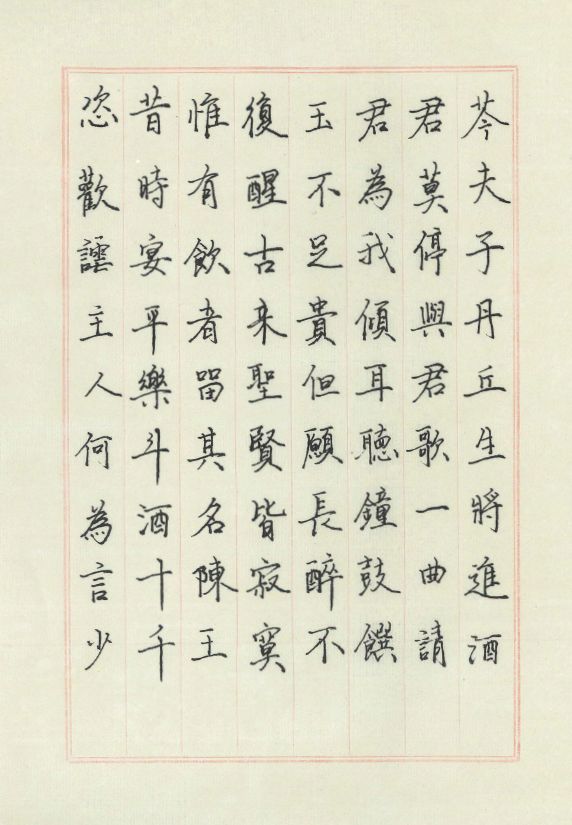 芩夫子丹丘生將進酒
君莫停與君歌一曲請
君為我傾耳聽鐘鼓饌
玉不足貴但願長醉不
復醒古来聖賢皆寂寞
惟有飲者留其名陳王
昔時宴平樂斗酒十千
恣歡謔主人何為言少